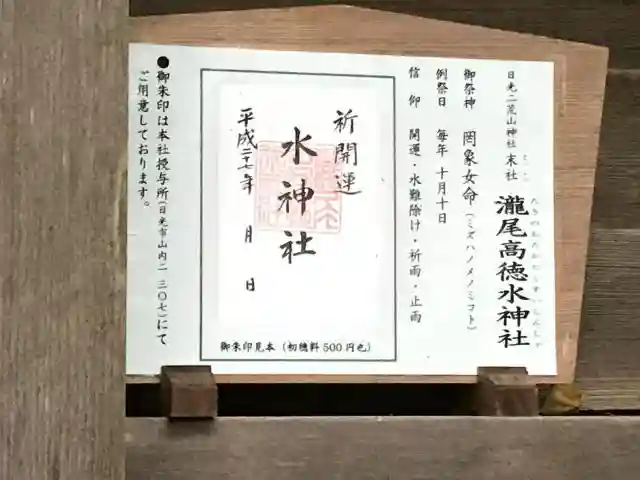 日光二荒山神社 末社
瀧尾高徳水神社
御祭神 罔象女命(ミズハノメノミコト)
例祭日 毎年 十月十日
信仰 開運・水難除け・祈雨・止雨
祈開運
水神社
平成二十七年 月 日
御朱印見本(初穂料500円也)
●御朱印は本社授与所(日光市山内二三〇七)にて
ご用意しております。